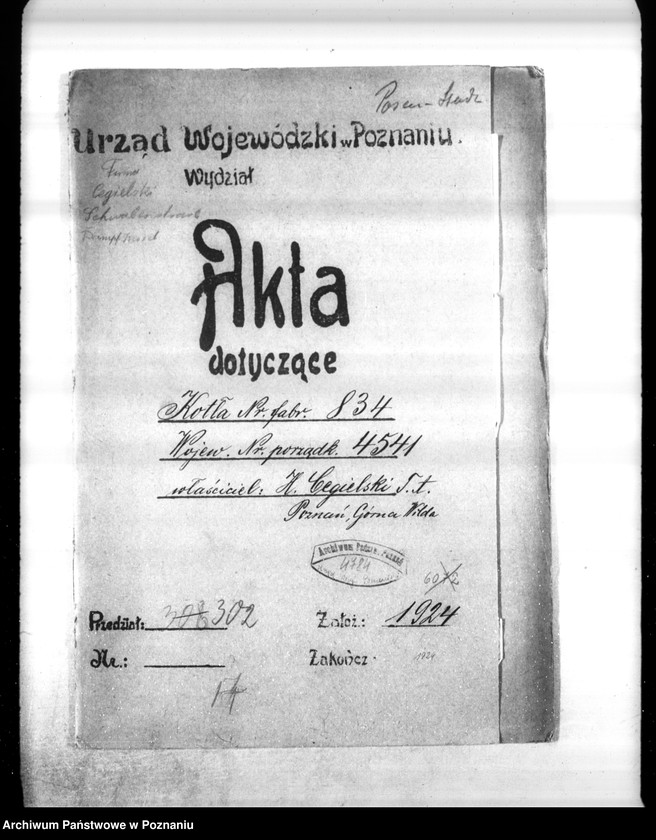 Posen-Stadt
Urząd Wojewódzki w Poznaniu.
Firma
Cegielski
Wydział
Akta
dotyczące
Kotła Nr. fabr. 834
Wojew. Nr. porządk. 4541
właściciel: H. Cegielski T. A.
Poznań, Górna Wilda
Archiwum Państw. Poznań
4784
6072
Przedział: 308 302
Założ.: 1924
Nr.:
Zakończ.
1924
14
Archiwum Państwowe w Poznaniu